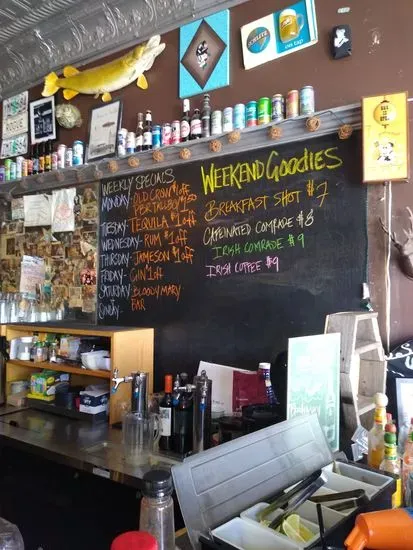 WEEKLY SPECIALS
MONDAY- OLD CROW $1 off
TUESDAY- TEQUILA $1 off
WEDNESDAY- RUM $1 off
THURSDAY- JAMESON $1 off
FRIDAY- GIN 1 off
SATURDAY- BLOODY MARY
SUNDAY- BAR
WEEKEND GOODIES
BREAKFAST SHOT $7
CAFEINATED COMRADE $8
IRISH COMRADE $9
IRISH COFFEE $9
SCHLITZ